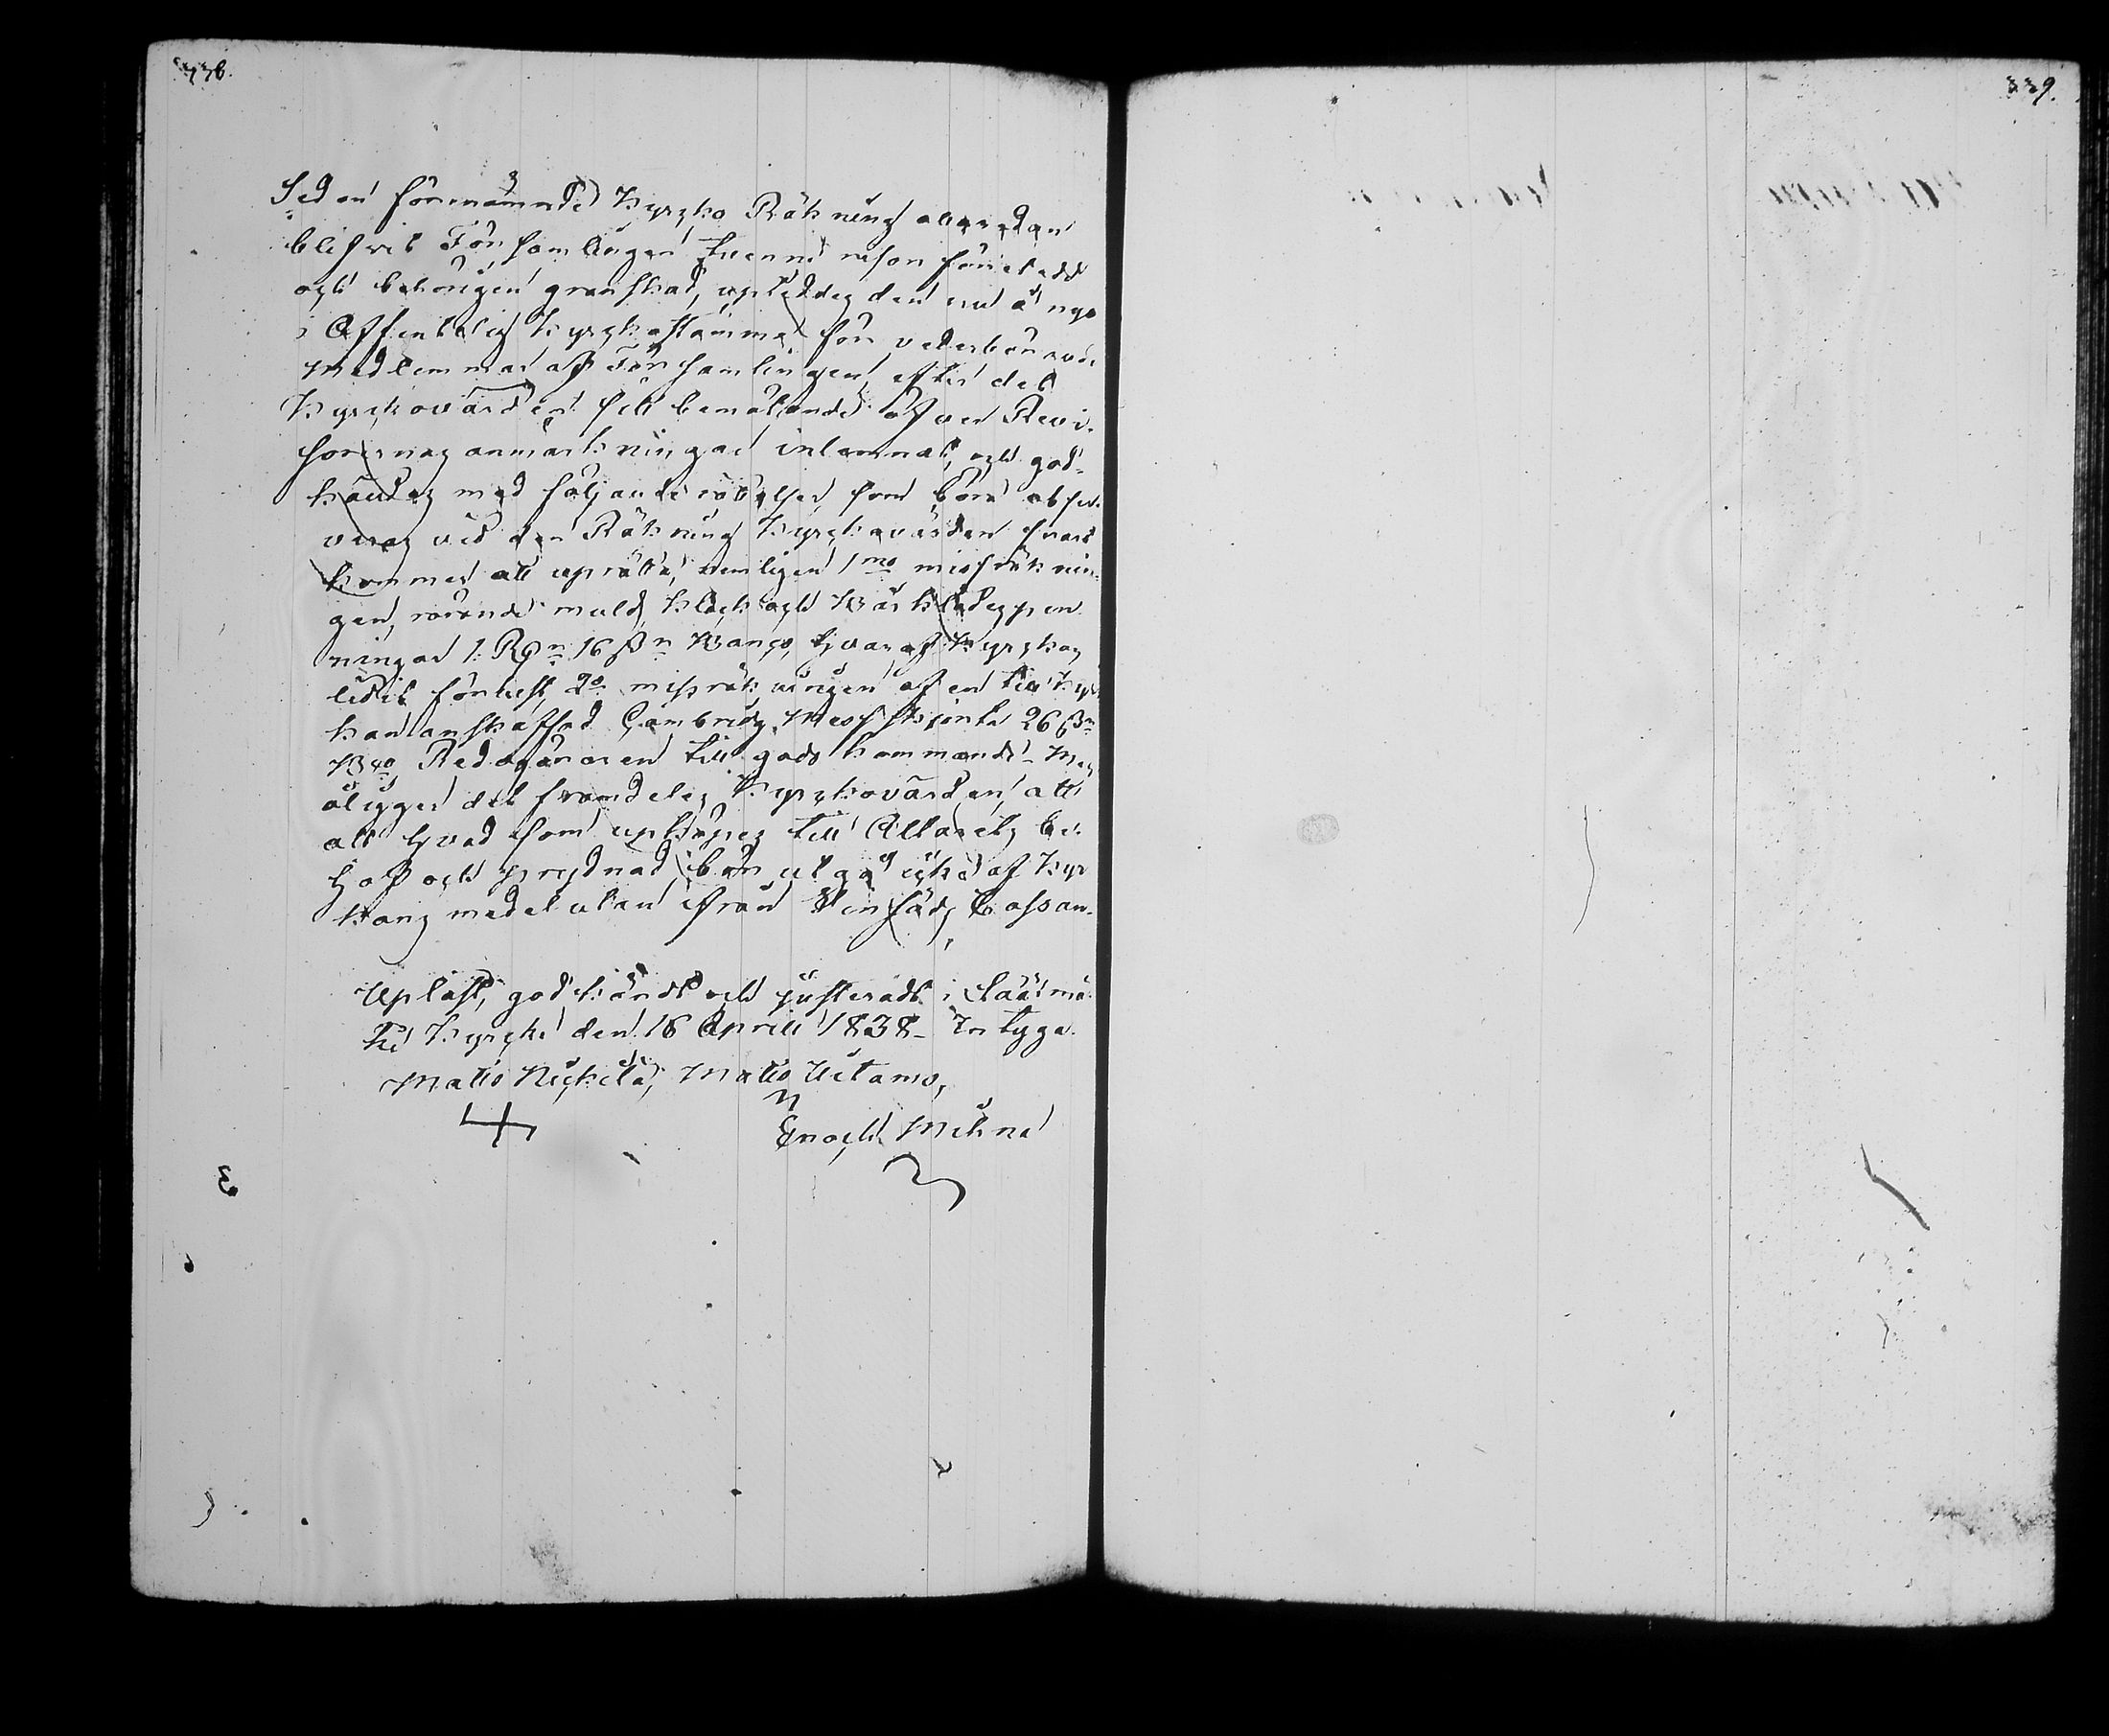 338.
339.
Sedan förenämnde Kyrcko Räkning allaredan
blifvit Församlingen tvenne resor föreredd
och behörigen granskad, upläddes den nu å nyo
i Offentelig Kyrckostämma för vederbörande
medlemmar af Församlingen, efter det
Kyrckovärden sitt bemötande öfver Revi-
sorernas anmärkningar inlemnat, och god-
kändes med följande rättelser, som böra obser-
veras vid den Räkning Kyrckovärden snart
kommer att uprätta, nemligen 1mo missräknin-
gen, rörande mull, klock och Bårklädespen-
ningar 1: Rdr 16 sk. Banco, hvaraf Kyrckan
lidit förlust, 2o missräkningen af en till Kyr-
kan anskaffad Cambrids Messskjorta 26 sk.
Bco Redogöraren till godo kommande - Men
åligger det framdeles Kyrckovärden, att
allt hvad som upköpes till Altarets be-
hof och prydnad, bör utgå icke af Kyr-
kans medel utan ifrån den säds Cassan.
Upläst, godkändt och justeradt i Säätmä-
ki Kyrcka den 16 April 1838 - Intyga
Matts Nickilä, Matts Uitamo,
Enoch Mikna